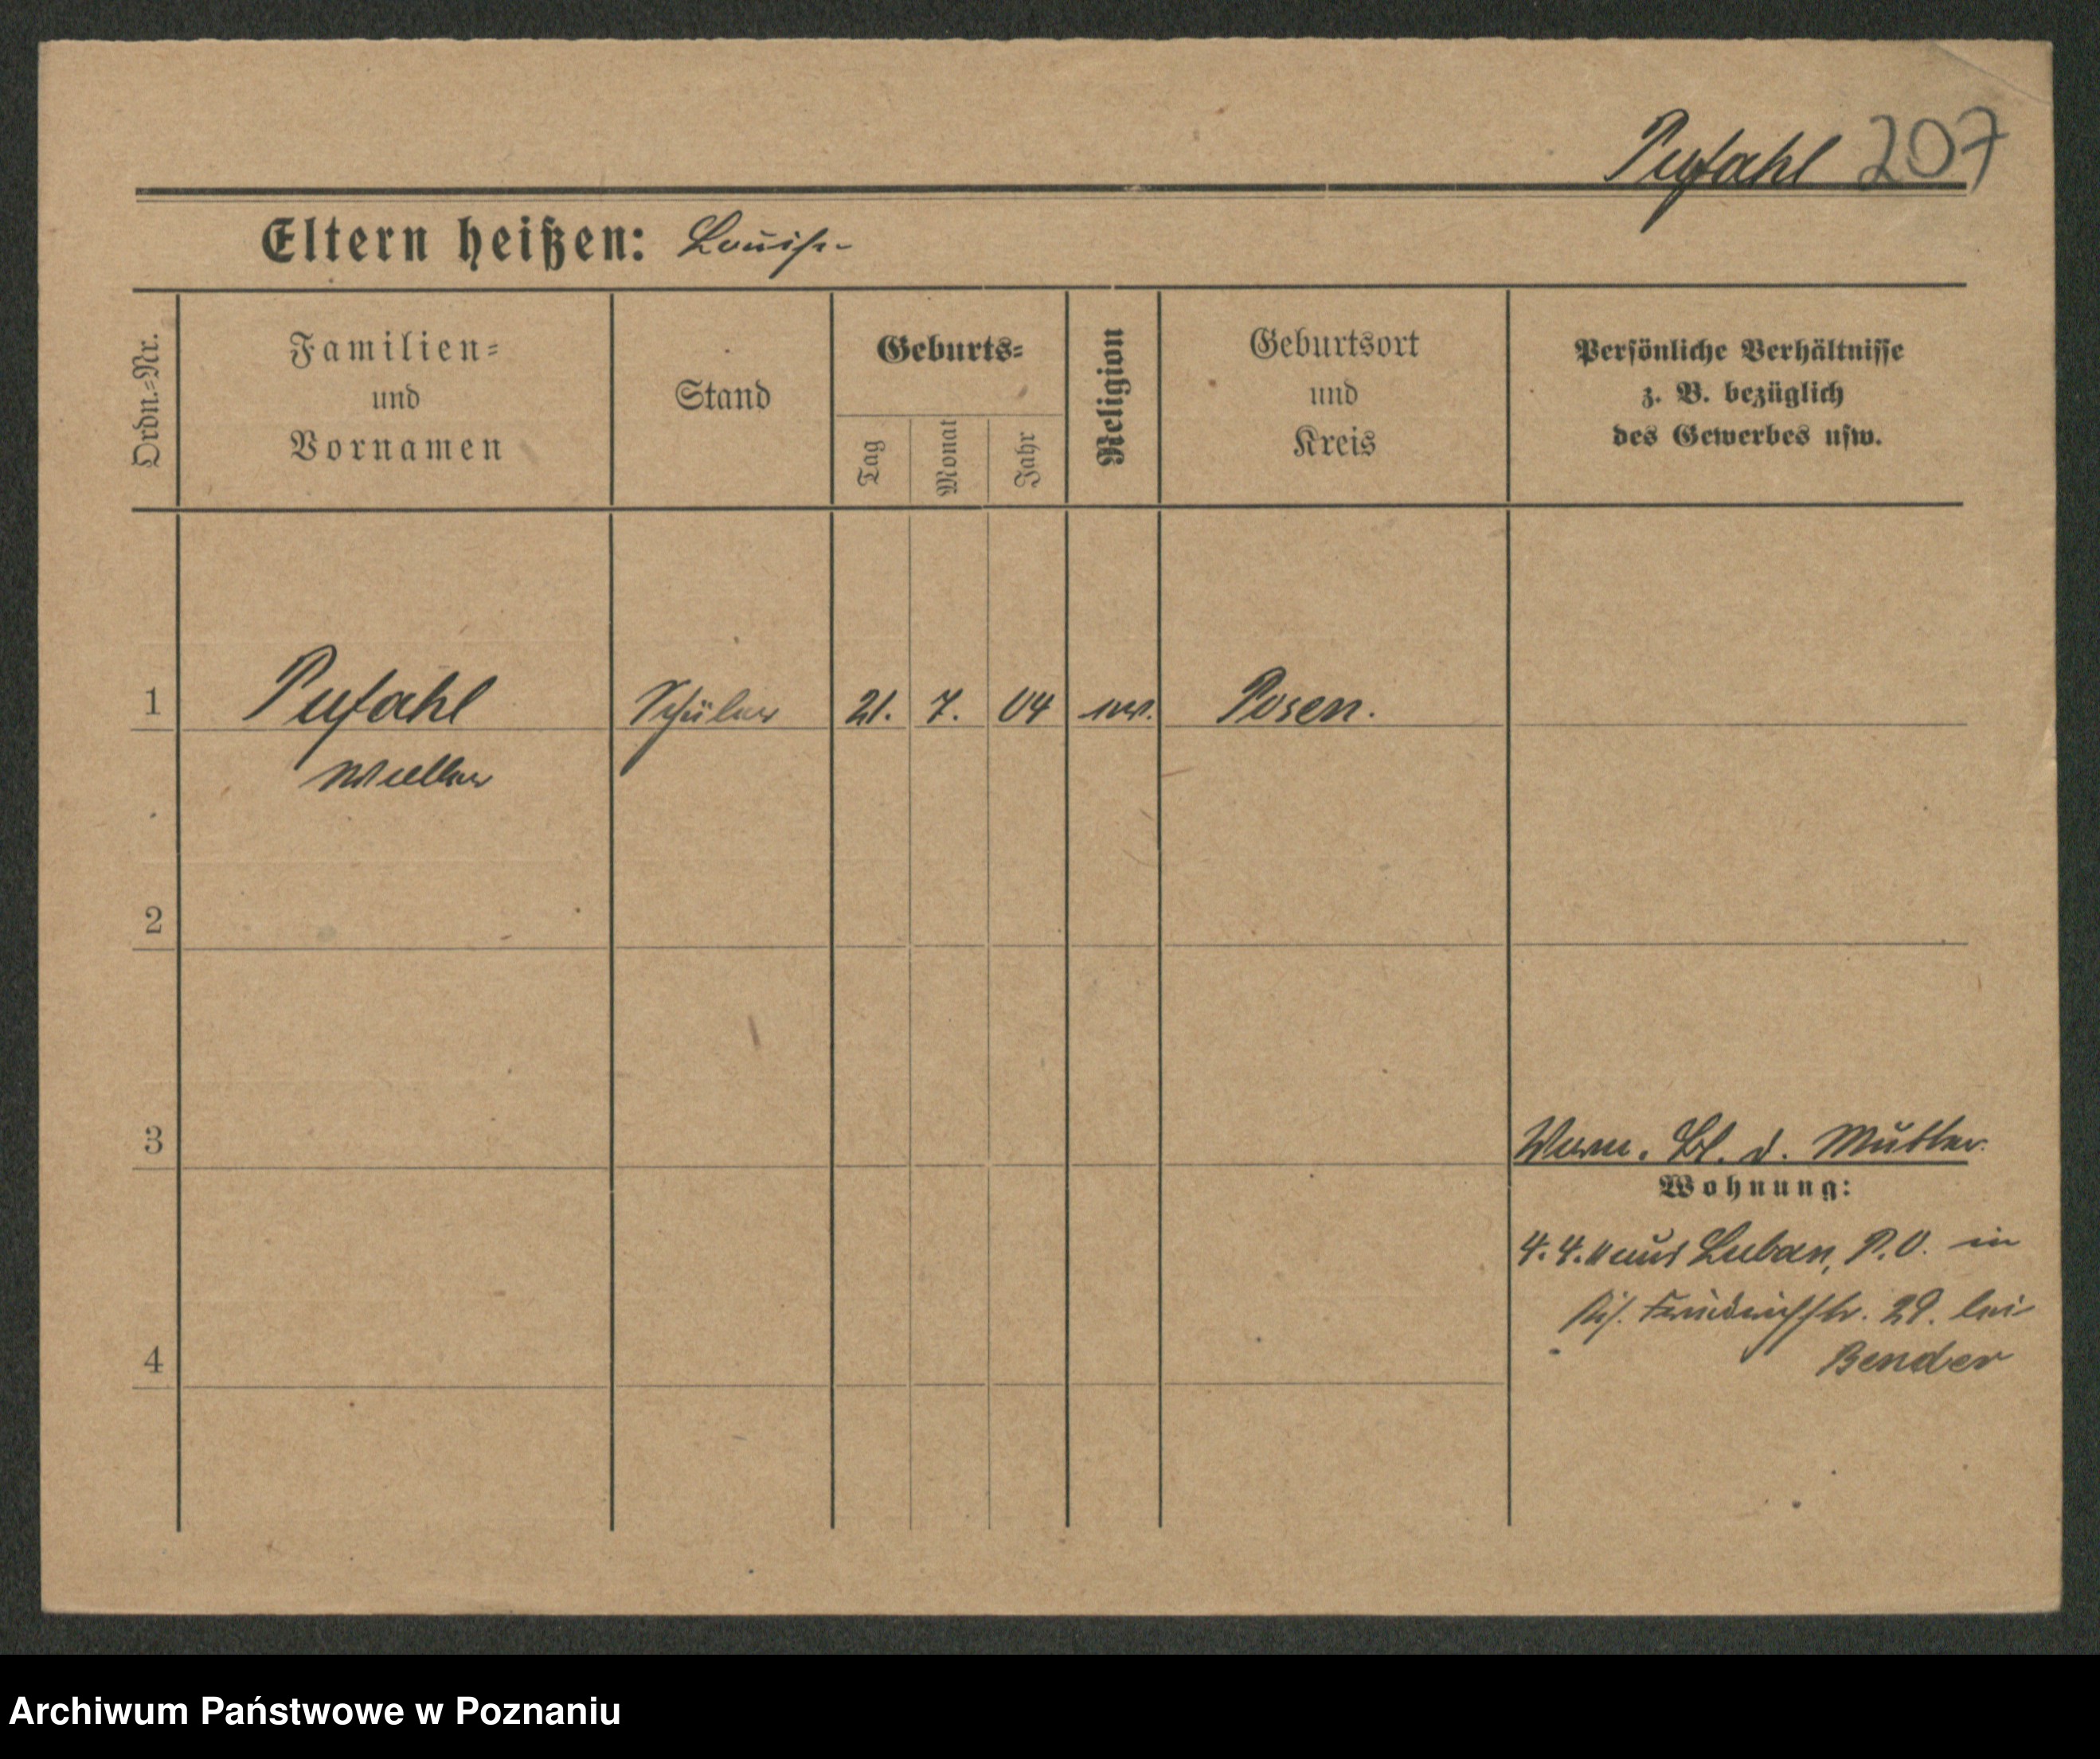 Pufahl 207
Eltern heißen: Louise
Ordn.=Nr.
Familien=
und
Vornamen
Stand
Geburts=
Tag
Monat
Jahr
Religion
Geburtsort
und
Kreis
Persönliche Verhältnisse
z. B. bezüglich
des Gewerbes usw.
1 Pufahl Schüler 21. 7. 04 ev. Posen.
Walter
2
3
Bl. d. Mutter
Wohnung:
4. 4. 11 aus Luban, P.O. in
Friedrichstr. 29. bei
Bender
4
Archiwum Państwowe w Poznaniu